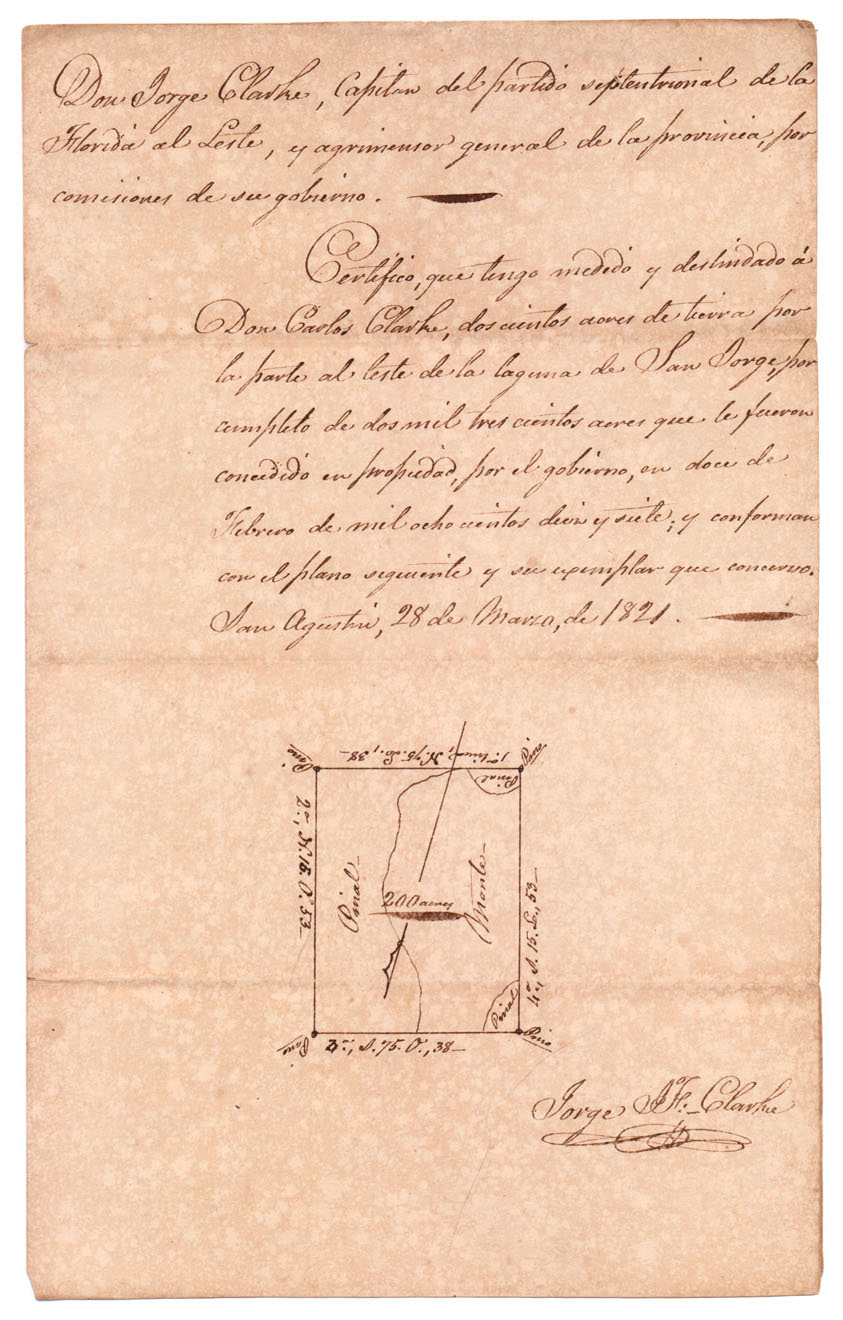 Don Jorge Clarke, Capitan del partido septentrional de la
Florida al Leste, y agrimensor general de la provincia, por
comisiones de su gobierno.
Certifico, que tengo medido y deslindado á
Don Carlos Clarke, doscientos acres de tierra por
la parte al leste de la laguna de San Jorge, por
completo de dos mil tres cientos acres que le fueron
concedido en propiedad, por el gobierno, en doce de
Febrero de mil ocho cientos diez y siete; y conforman
con el plano seguiente y su exemplar que concervo.
San Agustin, 28 de Marzo, de 1821.
Pino
1ra linea, N. 75. L., 38
Pino
Pinal
2ra, N. 15. O. 53
Pinal
Monte
200 acres
4ra, S. 15. L., 53
Pinal
Pino
S. 75. O., 38
Pino
Jorge J. F. Clarke